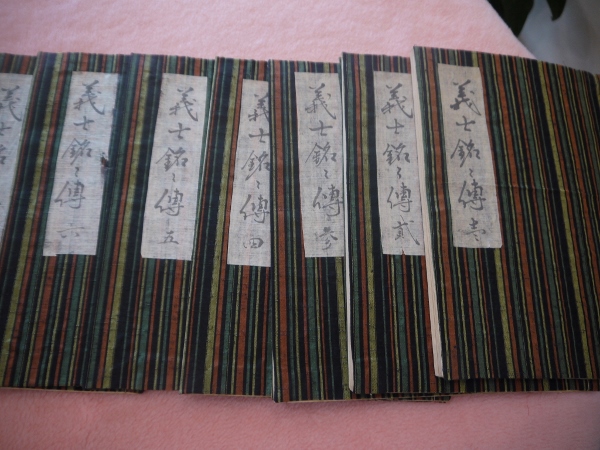 義士銘〻傳 壱
義士銘〻傳 弐
義士銘〻傳 参
義士銘〻傳 四
義士銘〻傳 五
義士銘〻傳 六
義士銘